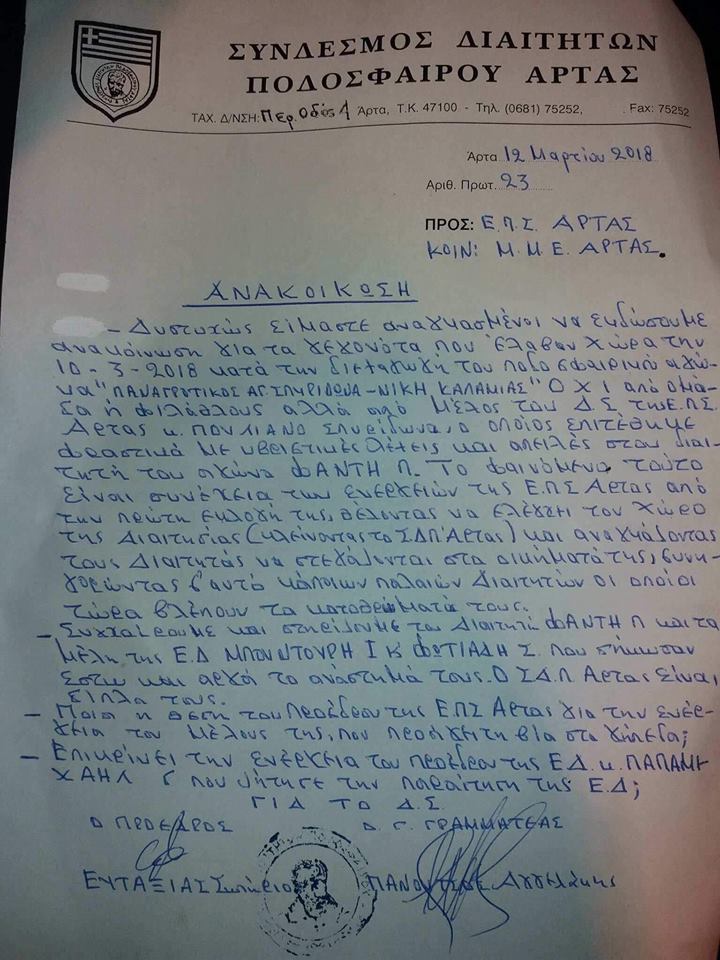 ΣΥΝΔΕΣΜΟΣ ΔΙΑΙΤΗΤΩΝ
ΠΟΔΟΣΦΑΙΡΟΥ ΑΡΤΑΣ
ΤΑΧ. Δ/ΝΣΗ: Περ. Οδός Άρτα, Τ.Κ. 47100 - Τηλ. (0681) 75252, Fax: 75252
Άρτα 12 Μαρτίου 2018
Αριθ. Πρωτ. 23
ΠΡΟΣ: Ε.Π.Σ ΑΡΤΑΣ
ΚΟΙΝ: Μ.Μ.Ε ΑΡΤΑΣ.
ΑΝΑΚΟΙΚΩΣΗ
- Δυστυχώς είμαστε αναγκασμένοι να εκδώσουμε
ανακοίνωση για τα γεγονότα που έλαβαν χώρα την
10-3-2018 κατά την διεξαγωγή του ποδοσφαιρικό αγώ-
να "ΠΑΝΑΓΡΟΤΙΚΟΣ ΑΓ. ΣΠΥΡΙΔΩΝΑ - ΝΙΚΗ ΚΑΛΑΜΙΑΣ" ΟΧΙ από ομά-
δα ή φιλάθλους αλλά από Μέλος του Δ.Σ της Ε.Π.Σ
Αρτας κ. ΠΟΥΛΙΑΝΟ Σπυρίδωνα, ο οποίος επιτέθηκε
φραστικά με υβριστικές λέξεις και απειλές στον διαι-
τητή του αγώνα ΦΑΝΤΗ Π. Το φαινόμενο τούτο
είναι συνέχεια των ενεργειών της Ε.Π.Σ Αρτας από
την πρώτη εκλογή της, θέλοντας να ελέγχει τον χώρο
της Διαιτησίας (κλείνοντας το ΣΔΠ Αρτας) και αναγκάζοντας
τους Διαιτητάς να στεγάζονται στα οικήματά της, συνη-
γορώντας σ' αυτό κάποιων παλαιών Διαιτητών οι οποίοι
τώρα βλέπουν τα κατορθώματά τους.
- Συγχαίρουμε και στηρίζουμε τον Διαιτητή ΦΑΝΤΗ Π και τα
μέλη της Ε.Δ ΜΠΟΥΝΤΟΥΡΗ Ι Κ ΦΩΤΙΑΔΗ Σ. που σήκωσαν
έστω και αργά το ανάστημά τους. Ο ΣΔΠ Αρτας είναι
δίπλα τους.
- Ποια η θέση του Προέδρου της ΕΠΣ Αρτας για την ενέρ-
γεια του Μέλους της, που προάγει τη βία στα γήπεδα;
- Επικρίνει την ενέργεια του προέδρου της Ε.Δ. κ. ΠΑΠΑΜΙ
ΧΑΗΛ που ζήτησε την παραίτηση της Ε.Δ;
ΓΙΑ ΤΟ Δ.Σ
Ο ΠΡΟΕΔΡΟΣ Ο. Γ. ΓΡΑΜΜΑΤΕΑΣ
ΕΥΤΑΞΙΑΣ Σωτήριος